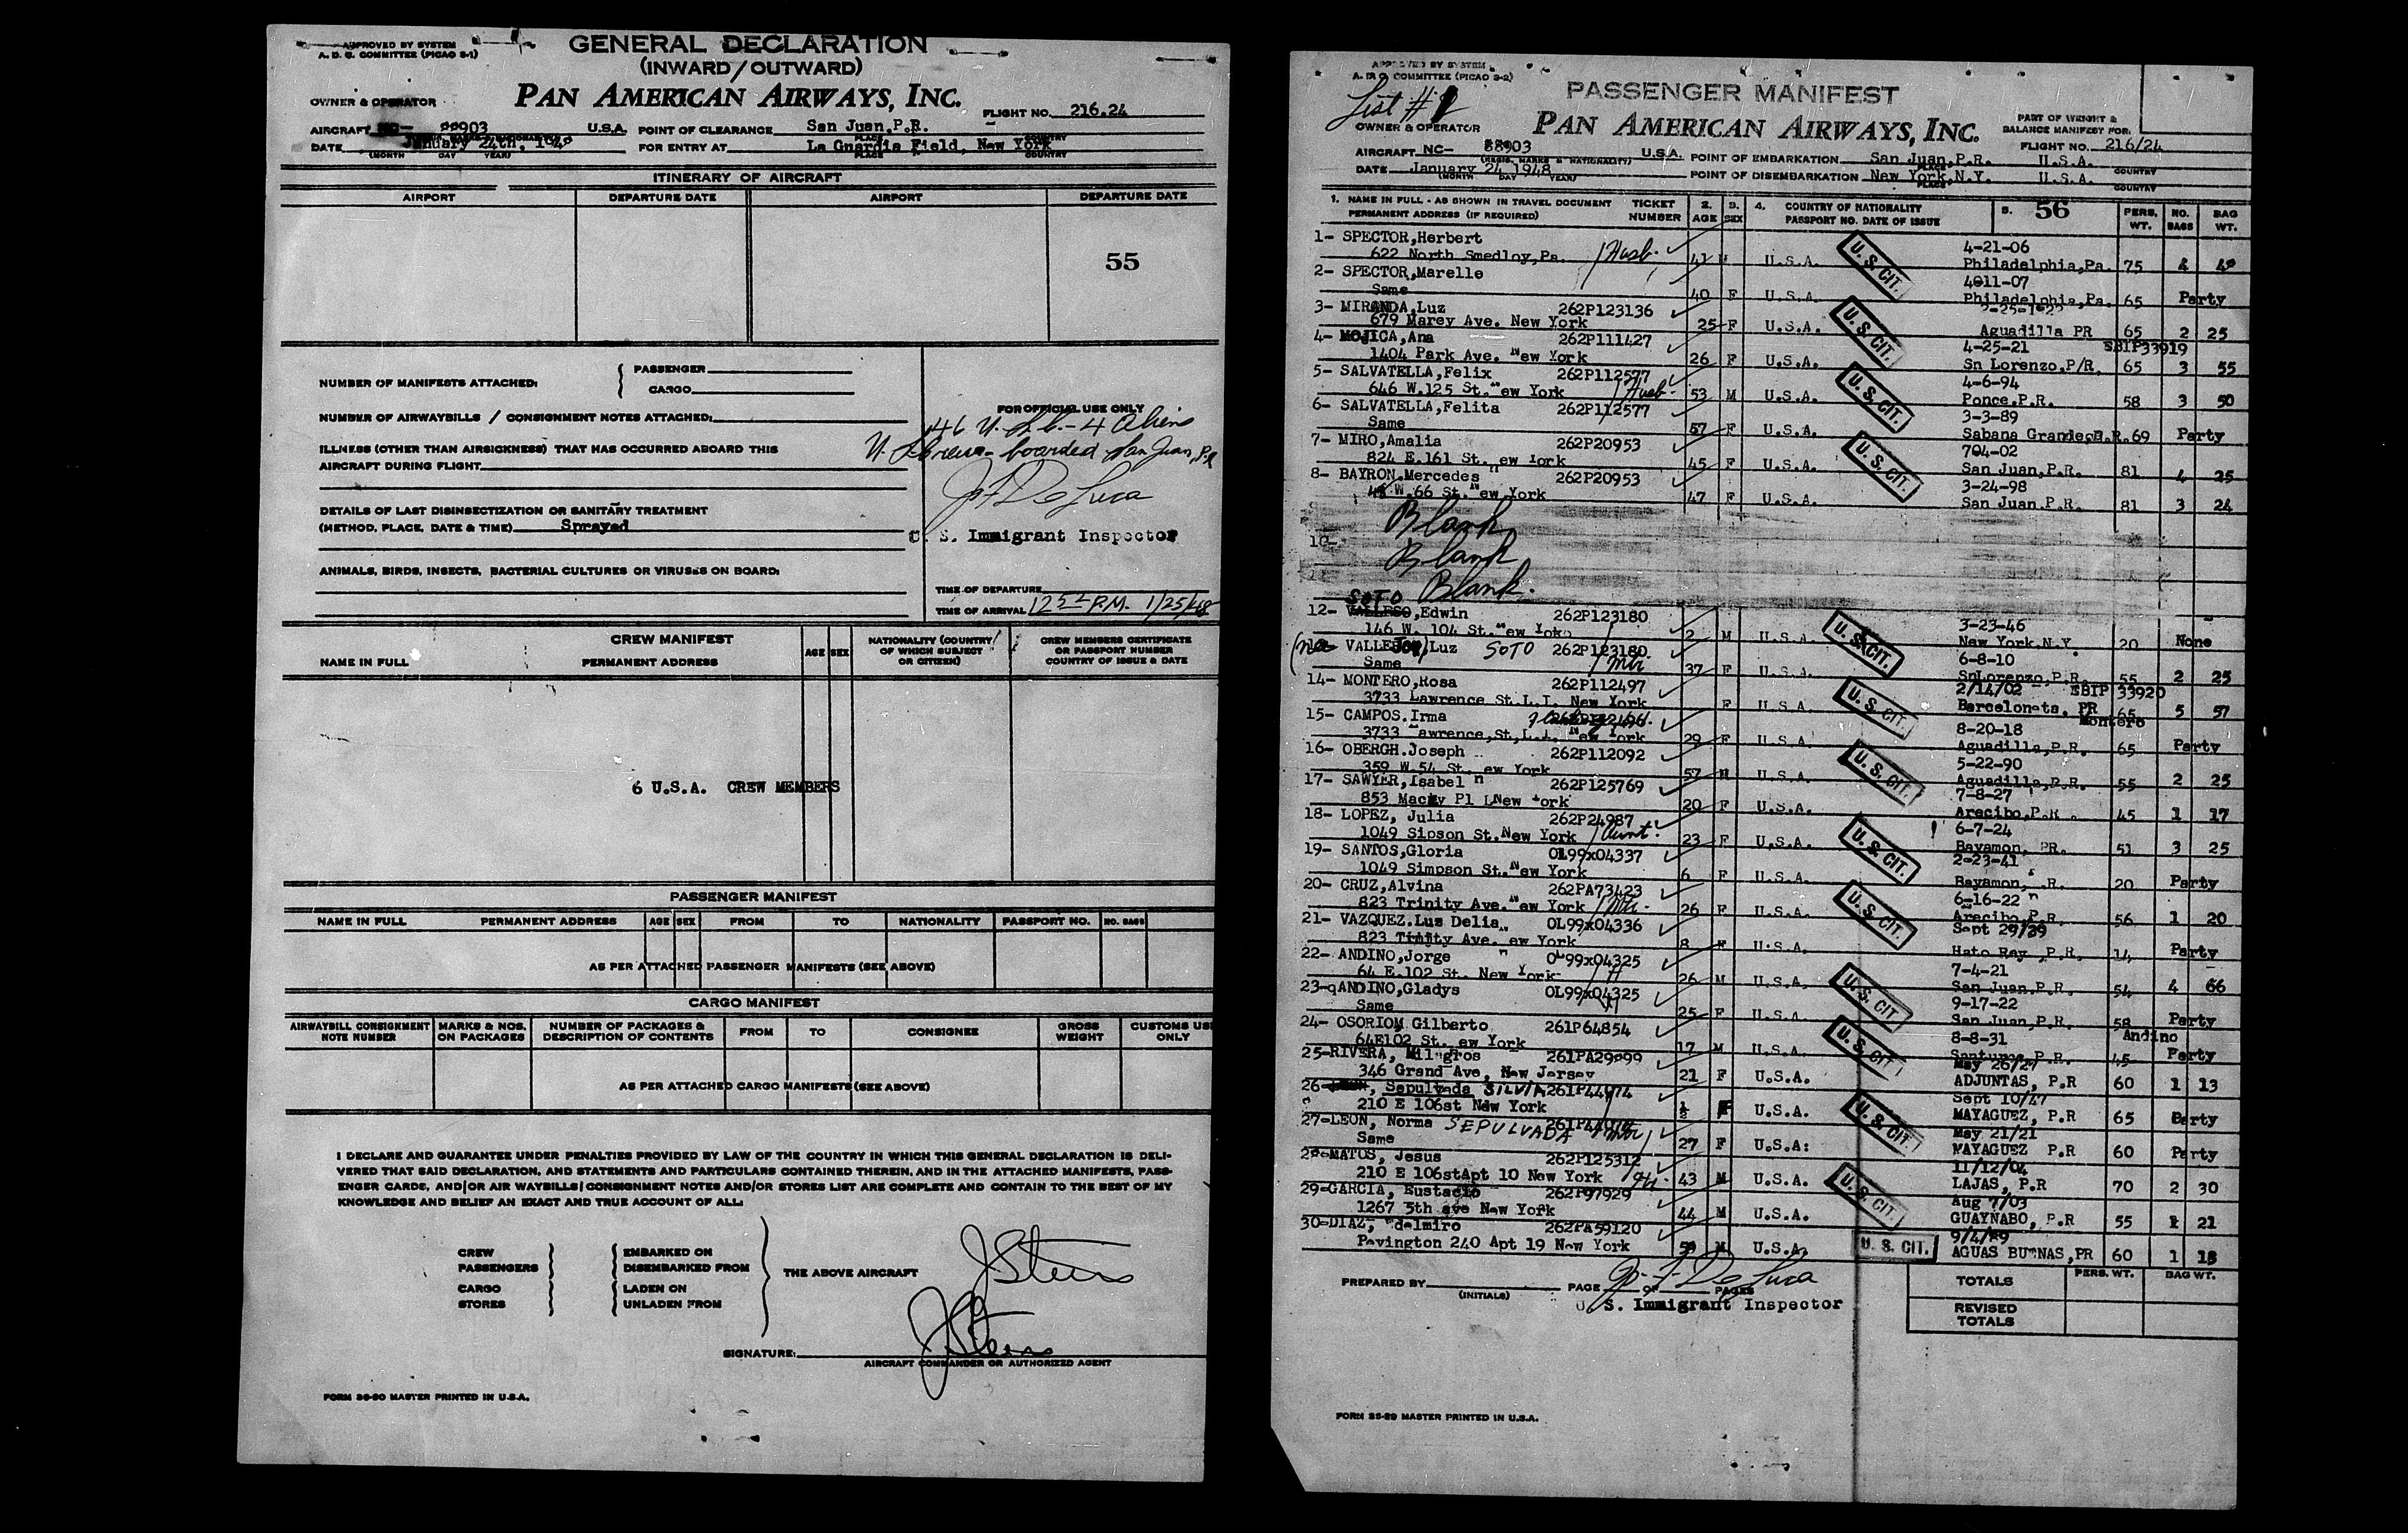 APPROVED BY SYSTEM
A. D. G. COMMITTEE (PICAO S-1)
GENERAL DECLARATION
(INWARD/OUTWARD)
PAN AMERICAN AIRWAYS, INC.
OWNER & OPERATOR
FLIGHT NO. 216.24
AIRCRAFT 903 U.S.A. POINT OF CLEARANCE San Juan,P.R.
PLACE COUNTRY
DATE January 24th, FOR ENTRY AT La Guardia Field, New York
(MONTH DAY YEAR) PLACE COUNTRY
ITINERARY OF AIRCRAFT
AIRPORT DEPARTURE DATE AIRPORT DEPARTURE DATE
55
NUMBER OF MANIFESTS ATTACHED:
PASSENGER
CARGO
NUMBER OF AIRWAYBILLS / CONSIGNMENT NOTES ATTACHED:
ILLNESS (OTHER THAN AIRSICKNESS) THAT HAS OCCURRED ABOARD THIS
AIRCRAFT DURING FLIGHT
DETAILS OF LAST DISINSECTIZATION OR SANITARY TREATMENT
(METHOD, PLACE, DATE & TIME) Sprayed
ANIMALS, BIRDS, INSECTS, BACTERIAL CULTURES OR VIRUSES ON BOARD:
FOR OFFICIAL USE ONLY
46 4 Aliens
boarded San Juan, P.R
De Luca
U. S. Immigrant Inspector
TIME OF DEPARTURE
TIME OF ARRIVAL P.M. 1/25/48
CREW MANIFEST
NAME IN FULL PERMANENT ADDRESS AGE SEX
NATIONALITY (COUNTRY
OF WHICH SUBJECT
OR CITIZEN)
CREW MEMBERS CERTIFICATE
OR PASSPORT NUMBER
COUNTRY OF ISSUE & DATE
6 U.S.A. CREW MEMBERS
PASSENGER MANIFEST
NAME IN FULL PERMANENT ADDRESS AGE SEX FROM TO NATIONALITY PASSPORT NO. NO. BAGS
AS PER ATTACHED PASSENGER MANIFESTS (SEE ABOVE)
CARGO MANIFEST
AIRWAYBILL CONSIGNMENT
NOTE NUMBER
MARKS & NOS.
ON PACKAGES
NUMBER OF PACKAGES &
DESCRIPTION OF CONTENTS
FROM TO CONSIGNEE
GROSS
WEIGHT
CUSTOMS USE
ONLY
AS PER ATTACHED CARGO MANIFESTS (SEE ABOVE)
I DECLARE AND GUARANTEE UNDER PENALTIES PROVIDED BY LAW OF THE COUNTRY IN WHICH THIS GENERAL DECLARATION IS DELI-
VERED THAT SAID DECLARATION, AND STATEMENTS AND PARTICULARS CONTAINED THEREIN, AND IN THE ATTACHED MANIFESTS, PASS-
ENGER CARDS, AND/OR AIR WAYBILLS/CONSIGNMENT NOTES AND/OR STORES LIST ARE COMPLETE AND CONTAIN TO THE BEST OF MY
KNOWLEDGE AND BELIEF AN EXACT AND TRUE ACCOUNT OF ALL:
CREW EMBARKED ON
PASSENGERS DISEMBARKED FROM
THE ABOVE AIRCRAFT
CARGO LADEN ON
STORES UNLADEN FROM
SIGNATURE:
AIRCRAFT COMMANDER OR AUTHORIZED AGENT
FORM 36-90 MASTER PRINTED IN U.S.A.
APPROVED BY SYSTEM
A. D. G. COMMITTEE (PICAO S-2)
List #
PASSENGER MANIFEST
PAN AMERICAN AIRWAYS, INC.
OWNER & OPERATOR
PART OF WEIGHT &
BALANCE MANIFEST FOR:
FLIGHT NO. 216/24
AIRCRAFT NC- 88903 U.S.A. POINT OF EMBARKATION San Juan,P.R. U.S.A.
(REGIS. MARKS & NATIONALITY) PLACE COUNTRY
DATE January 24,1948 POINT OF DISEMBARKATION New York,N.Y. U.S.A.
(MONTH DAY YEAR) PLACE COUNTRY
1. NAME IN FULL - AS SHOWN IN TRAVEL DOCUMENT TICKET 2. 3. 4. COUNTRY OF NATIONALITY 5. 56 PERS. NO. BAG
PERMANENT ADDRESS (IF REQUIRED) NUMBER AGE SEX PASSPORT NO. DATE OF ISSUE WT. BAGS WT.
1- SPECTOR,Herbert 4-21-06
622 North Smedloy,Pa. Husb. 41 U.S.A. U.S. CIT. Philadelphia,Pa. 75 4
2- SPECTOR,Marelle 4011-07
Same 40 F U.S.A. Philadelphia,Pa. 65 Party
3- MIRANDA,Luz 262P123136
679 Marey Ave. New York 25 F U.S.A. U.S. CIT. Aguadilla PR 65 2 25
4- MOJICA,Ana 262P111427 4-25-21 33919
1404 Park Ave. New York 26 F U.S.A. Sn Lorenzo,P/R. 65 3 55
5- SALVATELLA,Felix 262P112577 4-6-94
646 W.125 St. ew York Husb. 53 M U.S.A. U.S. CIT. Ponce,P.R. 58 3 50
6- SALVATELLA,Felita 262P112577 3-3-89
Same 57 F U.S.A. Sabana Grande,P.R. 69 Party
7- MIRO,Amalia 262P20953 704-02
824 E.161 St. ew York 45 F U.S.A. U.S. CIT. San Juan,P.R. 81 4 25
8- BAYRON,Mercedes 262P20953 3-24-98
W.66 St. New York 47 F U.S.A. San Juan,P.R. 81 3 24
Blank
10- Blank
Blank.
SOTO
12- Edwin 262P123180 3-23-46
146 W. 104 St. New York 2 M U.S.A. U.S. CIT. New York,N.Y. 20 None
Luz SOTO 262P123180 6-8-10
Same Mtr 37 F U.S.A. SnLorenzo,P.R. 55 2 25
14- MONTERO,Rosa 262P112497 2/14/02 33920
3733 Lawrence St.L.I. New York F U.S.A. U.S. CIT. Barceloneta, PR 65 5 57
15- CAMPOS.Irma 8-20-18 Montero
3733 awrence,St,L.I. New York 29 F U.S.A. Aguadilla,P.R. 65 Party
16- OBERGH.Joseph 262P112092 5-22-90
359 W.54 St. ew York 57 M U.S.A. U.S. CIT. Aguadilla,P.R. 55 2 25
17- SAWYER,Isabel 262P125769 7-8-27
853 Macky Pl New York 20 F U.S.A. Arecibo,P.R. 45 1 17
18- LOPEZ, Julia 262P24987 6-7-24
1049 Sipson St.New York Aunt. 23 F U.S.A. U.S. CIT. Bayamon, PR. 51 3 25
19- SANTOS,Gloria OL99x04337 2-23-41
1049 Simpson St.New York 6 F U.S.A. Bayamon, .R. 20 Party
20- CRUZ,Alvina 262PA73423 6-16-22
823 Trinity Ave. New York Mtr. 26 F U.S.A. U.S. CIT. Arecibo,P.R. 56 1 20
21- VAZQUEZ.Lus Delia OL99x04336 Sept 29/39
823 Trinity Ave. ew York 8 F U.S.A. Hato Rey, P.R. 14 Party
22- ANDINO,Jorge 99x04325 7-4-21
64 E.102 St. New York H 26 M U.S.A. U.S. CIT San Juan,P.R. 54 4 66
23- ANDINO,Gladys OL99x04325 9-17-22
Same 25 F U.S.A. San Juan,P.R. 58 Party
24- OSORIOM Gilberto 261P64854 8-8-31 Andino
64E102 St. ew York 17 M U.S.A. U.S. CIT Santurce,P.R. 45 Party
25-RIVERA, Milagros May 26/27
346 Grand Ave, New Jersey 21 F U.S.A. ADJUNTAS, P.R 60 1 13
26- Sepulveda SILVIA 261P44974 Sept 10/47
210 E 106st New York ½ F U.S.A. U.S. CIT. MAYAGUEZ, P.R 65 Party
27-LEON, Norma SEPULVADA Mtr May 21/21
Same 27 F U.S.A: MAYAGUEZ P.R 60 Party
MATOS, Jesus 262P125312 11/12/04
210 E 106stApt 10 New York 43 M U.S.A. U.S. CIT. LAJAS, P.R 70 2 30
29-GARCIA, Eustacio 262P97929 Aug 7/03
1267 5th ave New York 44 M U.S.A. GUAYNABO, P.R 55 1 21
30-DIAZ, delmiro 262PA59120
Pavington 240 Apt 19 New York M U.S.A. U. S. CIT. AGUAS BUENAS,PR 60 1
PREPARED BY PAGE OF PAGES
(INITIALS)
De Luca
U. S. Immigrant Inspector
PERS. WT. BAG WT.
TOTALS
REVISED
TOTALS
FORM 35-89 MASTER PRINTED IN U.S.A.